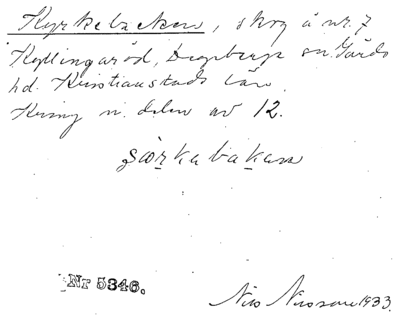 Kyrkebacken, skog å nr. 7
Kyllingaröd, Degeberga sn. Gärds
hd. Kristianstads län.
Kring n. delen av 12.
Nr 5346.
Nils Nilsson 1933.